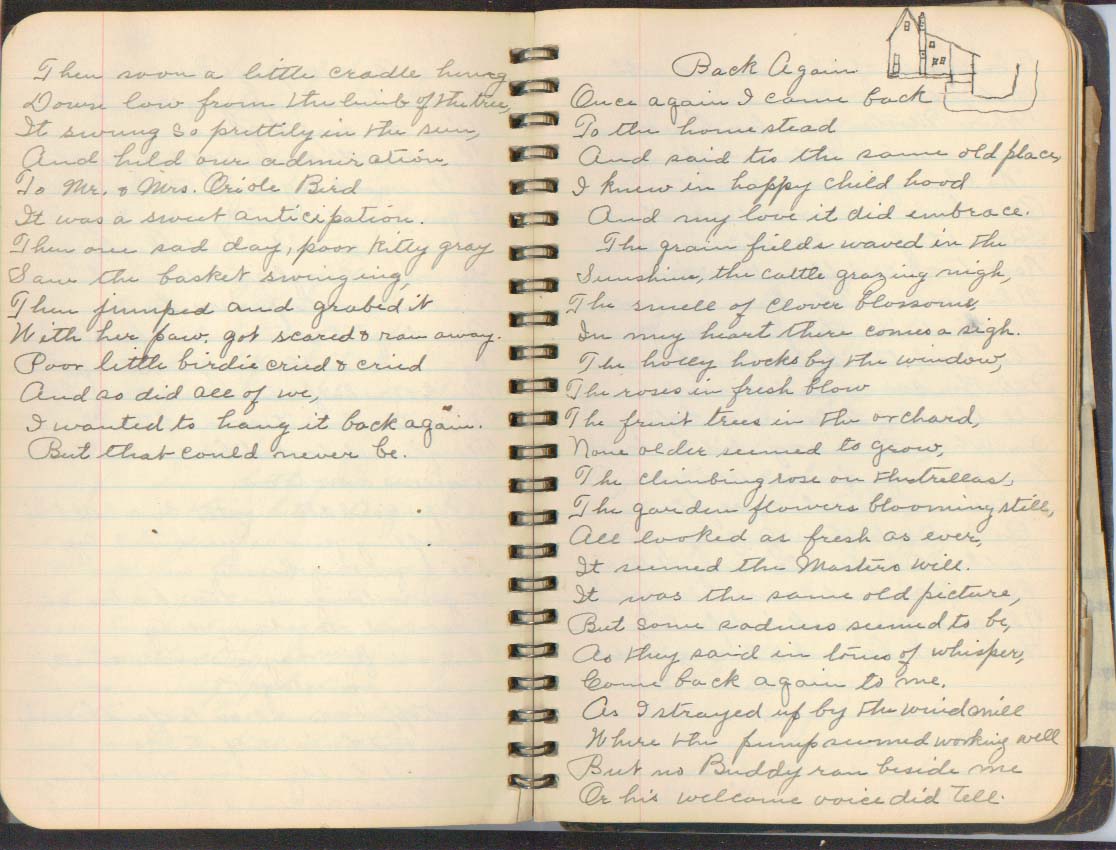 Then soon a little cradle hung
Down low from the limb of the tree,
It swung so prettily in the sun,
And held our admiration,
To Mr. & Mrs. Oriole Bird
It was a sweet anticipation.
Then one sad day, poor Kitty gray
Saw the basket swinging,
Then jumped and grabed it
With her paw, got scared & ran away.
Poor little birdie cried & cried
And so did all of we,
I wanted to hang it back again.
But that could never be.
Back Again
Once again I came back
To the homestead
And said tis the same old place,
I knew in happy child hood
And my love it did embrace.
The grain fields waved in the
Sunshine, the cattle grazing nigh,
The smell of clover blossoms,
In my heart there comes a sigh.
The holly hocks by the window,
The roses in fresh blow
The fruit trees in the orchard,
None older seemed to grow,
The climbing rose on the trellas,
The garden flowers blooming still,
All looked as fresh as ever,
It seemed the Masters will.
It was the same old picture,
But some sadness seemed to be,
As they said in tones of whisper,
Come back again to me.
As I strayed up by the windmill
Where the pump seemed working well
But no Buddy ran beside me
Or his welcome voice did tell.